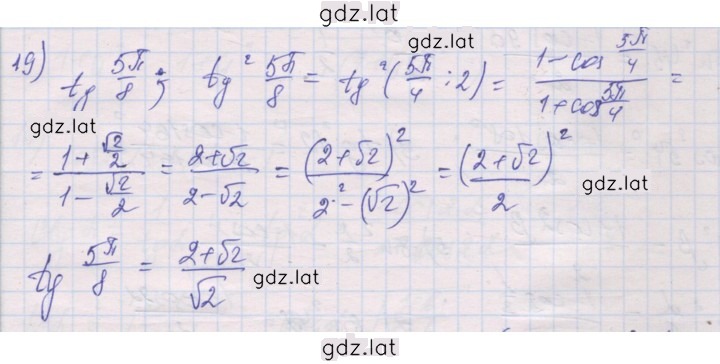 gdz.lat
19) tg 5π/8 ; tg² 5π/8 = tg² (5π/4 : 2) = (1 - cos 5π/4)/(1 + cos 5π/4) =
gdz.lat
gdz.lat
= (1 + √2/2)/(1 - √2/2) = (2+√2)/(2-√2) = (2+√2)²/(2² - (√2)²) = (2+√2)²/2
gdz.lat
tg 5π/8 = (2+√2)/√2
gdz.lat
gdz.lat